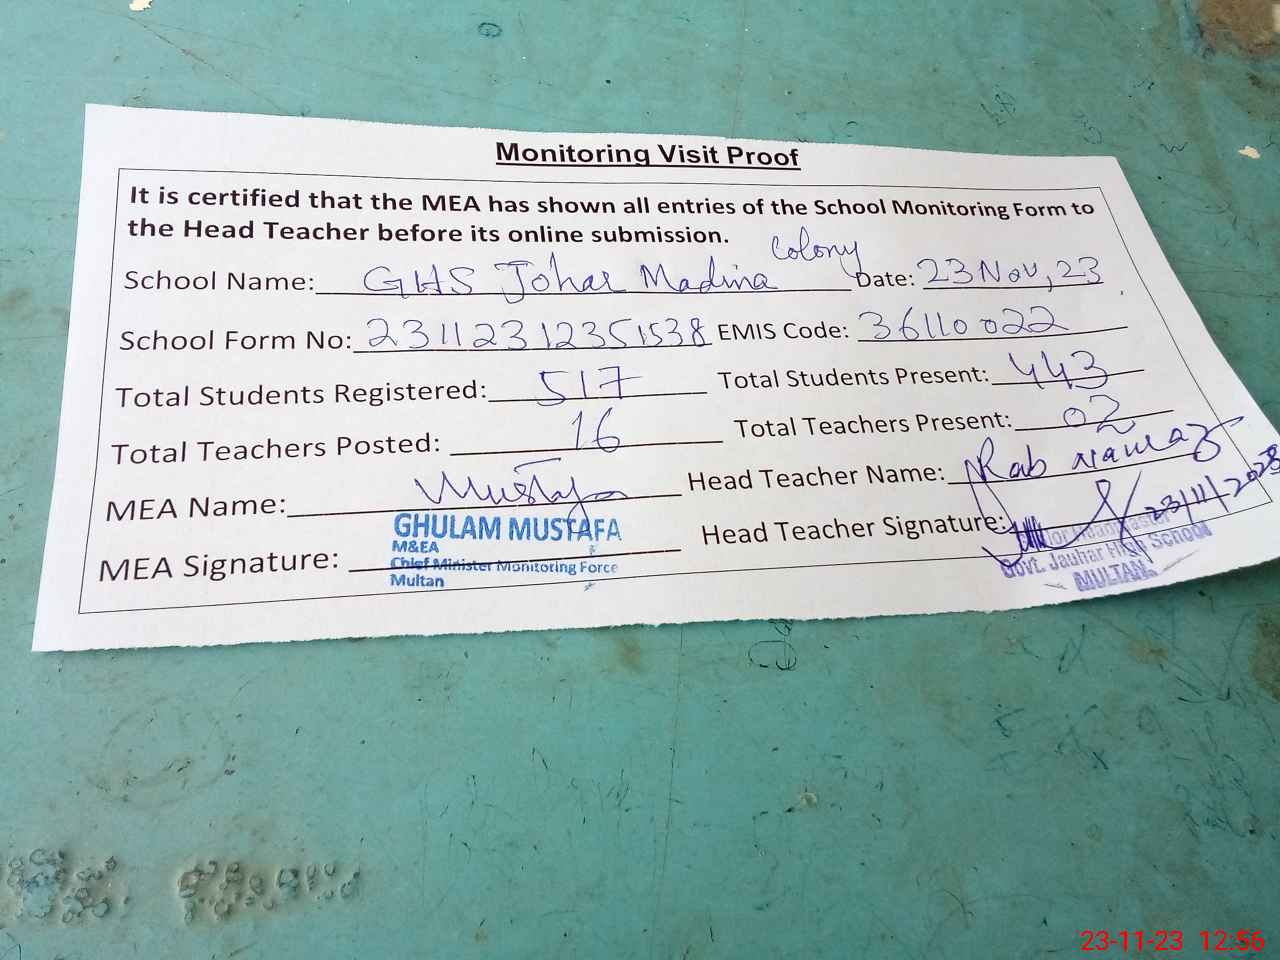 Monitoring Visit Proof
It is certified that the MEA has shown all entries of the School Monitoring Form to
the Head Teacher before its online submission.
School Name: GHS Johar Madina Colony Date: 23 Nov, 23
School Form No: 23112312351538 EMIS Code: 36110022
Total Students Registered: 517 Total Students Present: 443
Total Teachers Posted: 16 Total Teachers Present: 02
MEA Name: Mustafa Head Teacher Name: Rab nawaz
MEA Signature: Head Teacher Signature: 23/11/2023
GHULAM MUSTAFA
M&EA
Chief Minister Monitoring Force
Multan
Senior Headmaster
Govt. Jauhar High School
MULTAN.
23-11-23 12:56